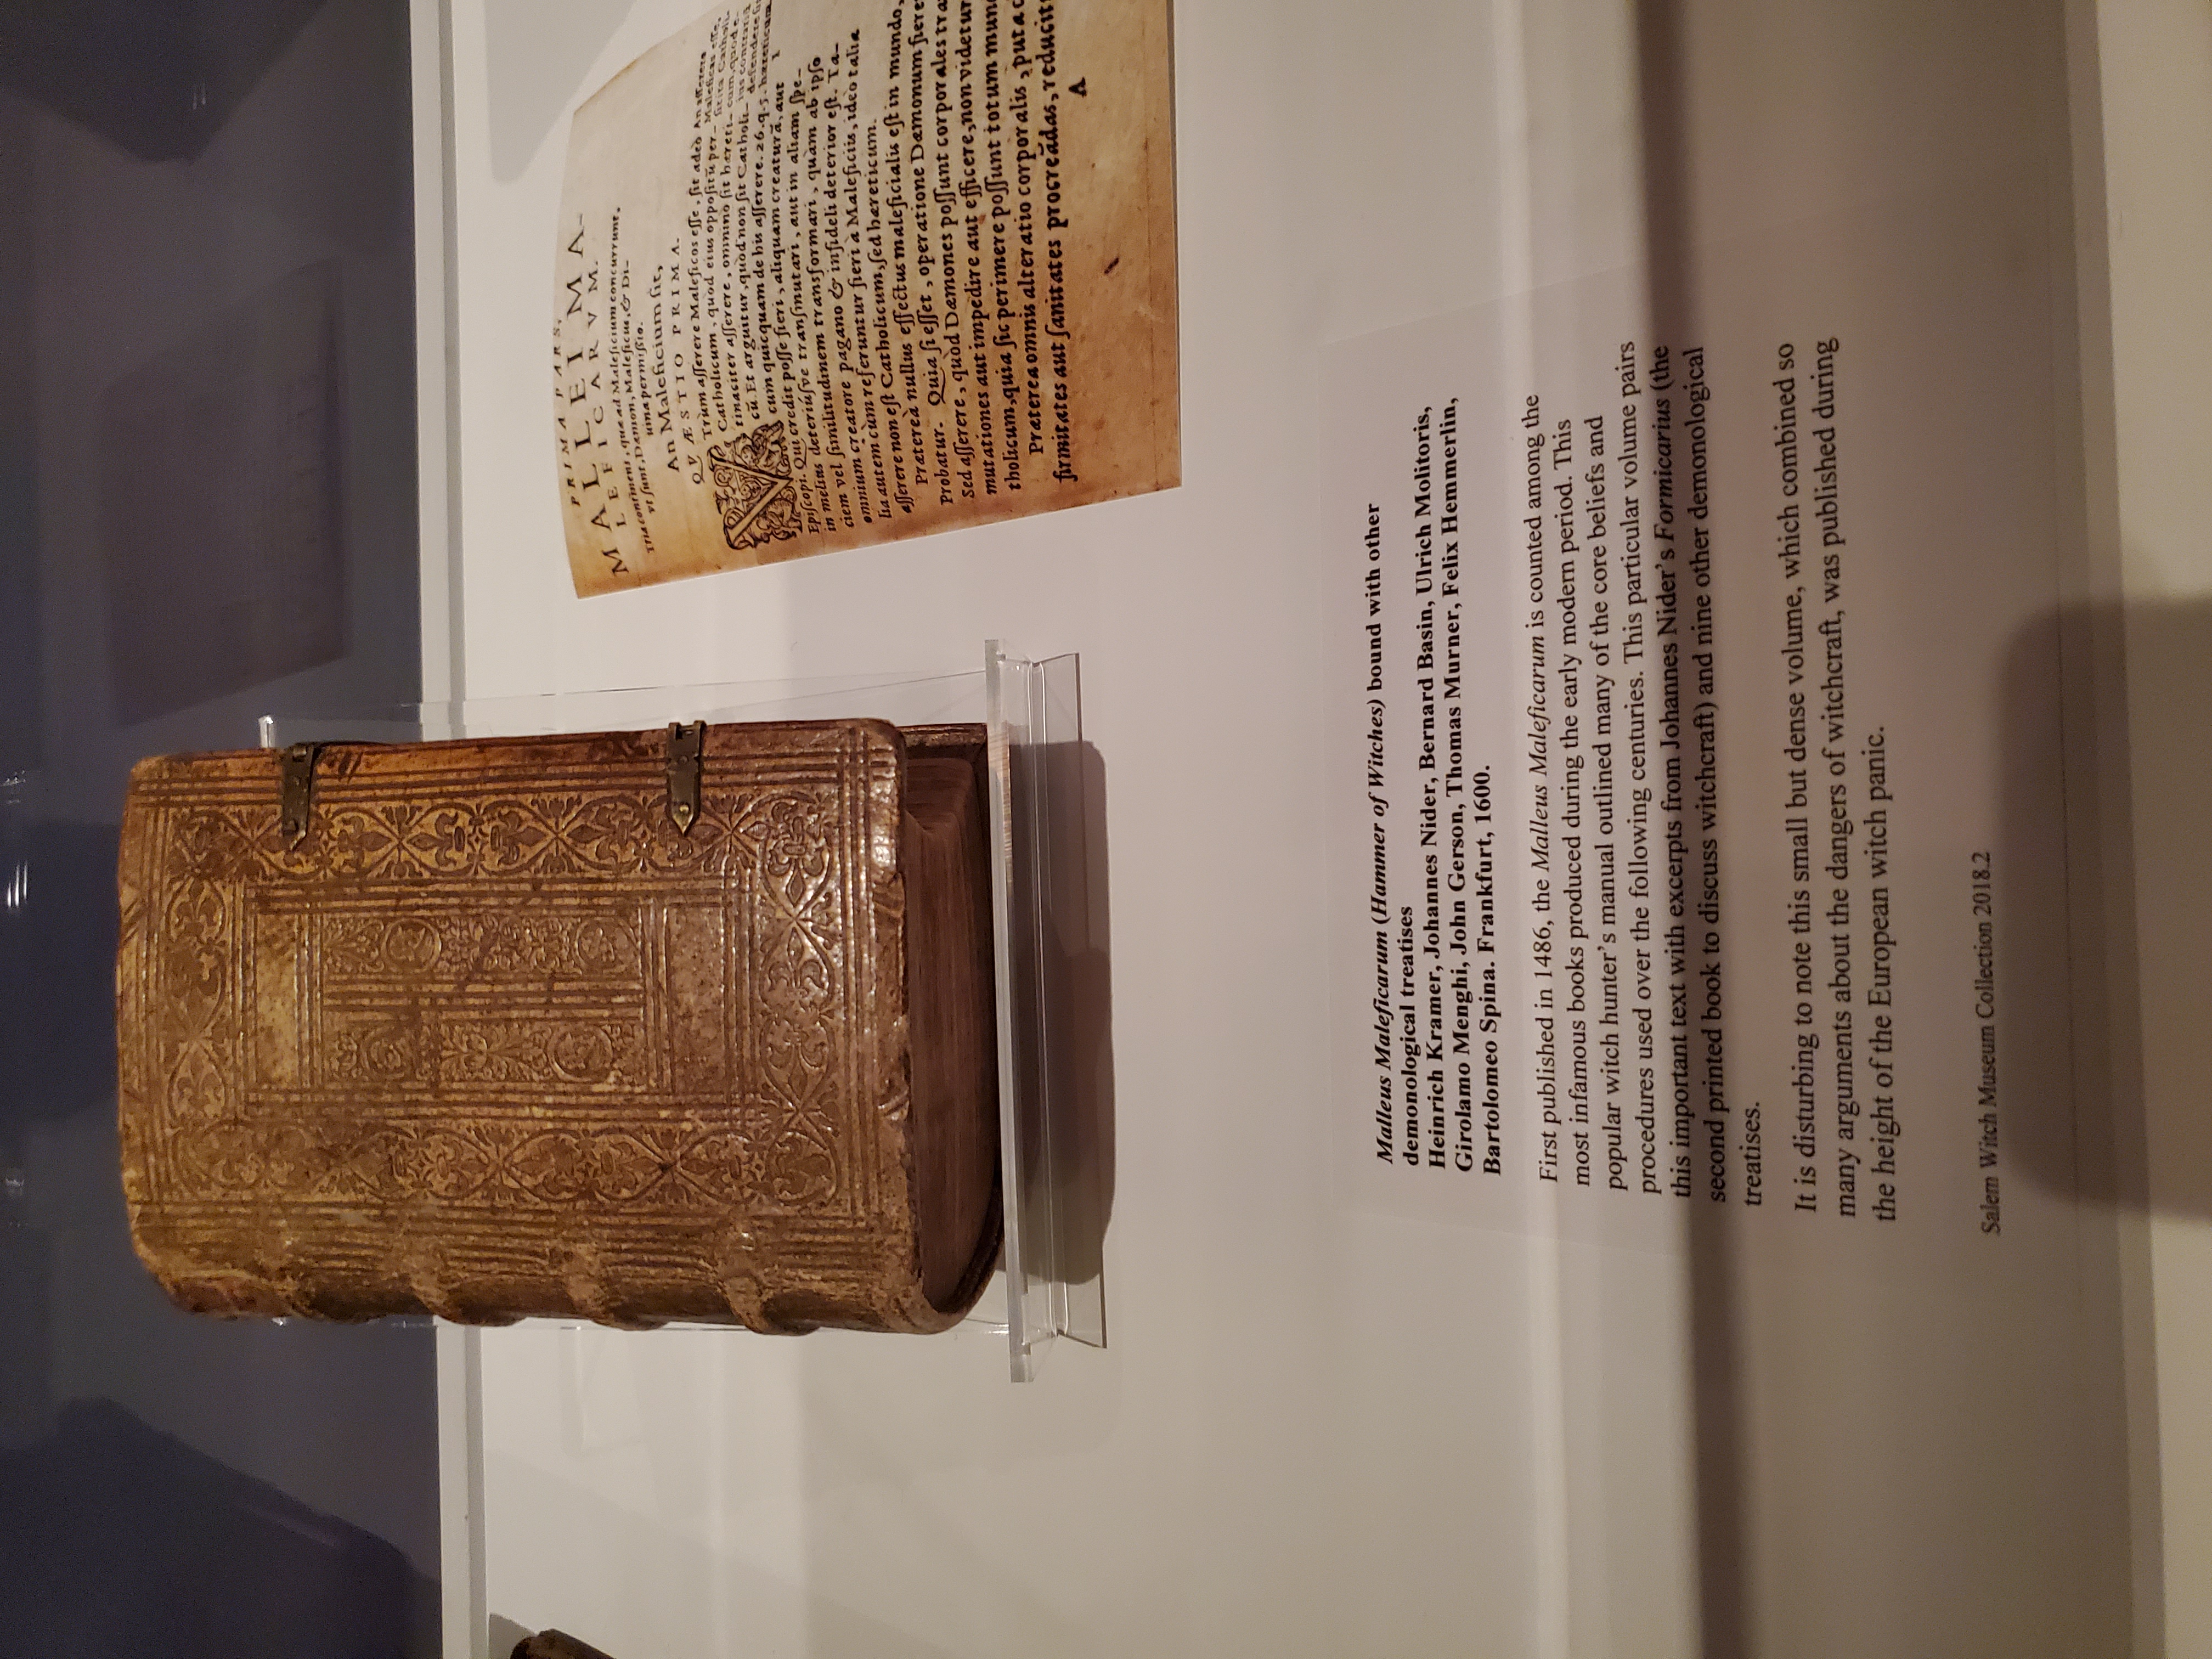 PRIMA PARS,
MALLEI MA-
LEFICARVM.
Tria continens, quæ ad Maleficium concurrunt,
vt sunt, Dæmon, Maleficus, & Di-
uina permißio.
An Maleficium sit,
QVÆSTIO PRIMA.
Vtrùm asserere Maleficos esse, sit adeò
Catholicum, quod eius oppositũ per-
tinaciter asserere, omnino sit hæreti-
cũ. Et arguitur, quòd non sit Catholi-
cum quicquam de his asserere. 26. q. 5.
Episcopi. Qui credit posse fieri, aliquam creaturã, aut
in melius deteriúsve transmutari, aut in aliam spe-
ciem vel similitudinem transformari, quàm ab ipso
omnium creatore pagano & infideli deterior est. Ta-
lia autem cùm referuntur fieri à Maleficis, ideò talia
asserere non est Catholicum, sed hæreticum.
Prætereà nullus effectus maleficialis est in mundo,
Probatur. Quia si esset, operatione Dæmonum fieret
Sed asserere, quòd Dæmones possunt corporales tra
mutationes aut impedire aut efficere, non videtur
tholicum, quia sic perimere possunt totum mun
Præterea omnis alteratio corporalis, puta c
firmitates aut sanitates procreãdas, reducit
A
Malleus Maleficarum (Hammer of Witches) bound with other
demonological treatises
Heinrich Kramer, Johannes Nider, Bernard Basin, Ulrich Molitoris,
Girolamo Menghi, John Gerson, Thomas Murner, Felix Hemmerlin,
Bartolomeo Spina. Frankfurt, 1600.
First published in 1486, the Malleus Maleficarum is counted among the
most infamous books produced during the early modern period. This
popular witch hunter's manual outlined many of the core beliefs and
procedures used over the following centuries. This particular volume pairs
this important text with excerpts from Johannes Nider's Formicarius (the
second printed book to discuss witchcraft) and nine other demonological
treatises.
It is disturbing to note this small but dense volume, which combined so
many arguments about the dangers of witchcraft, was published during
the height of the European witch panic.
Salem Witch Museum Collection 2018.2